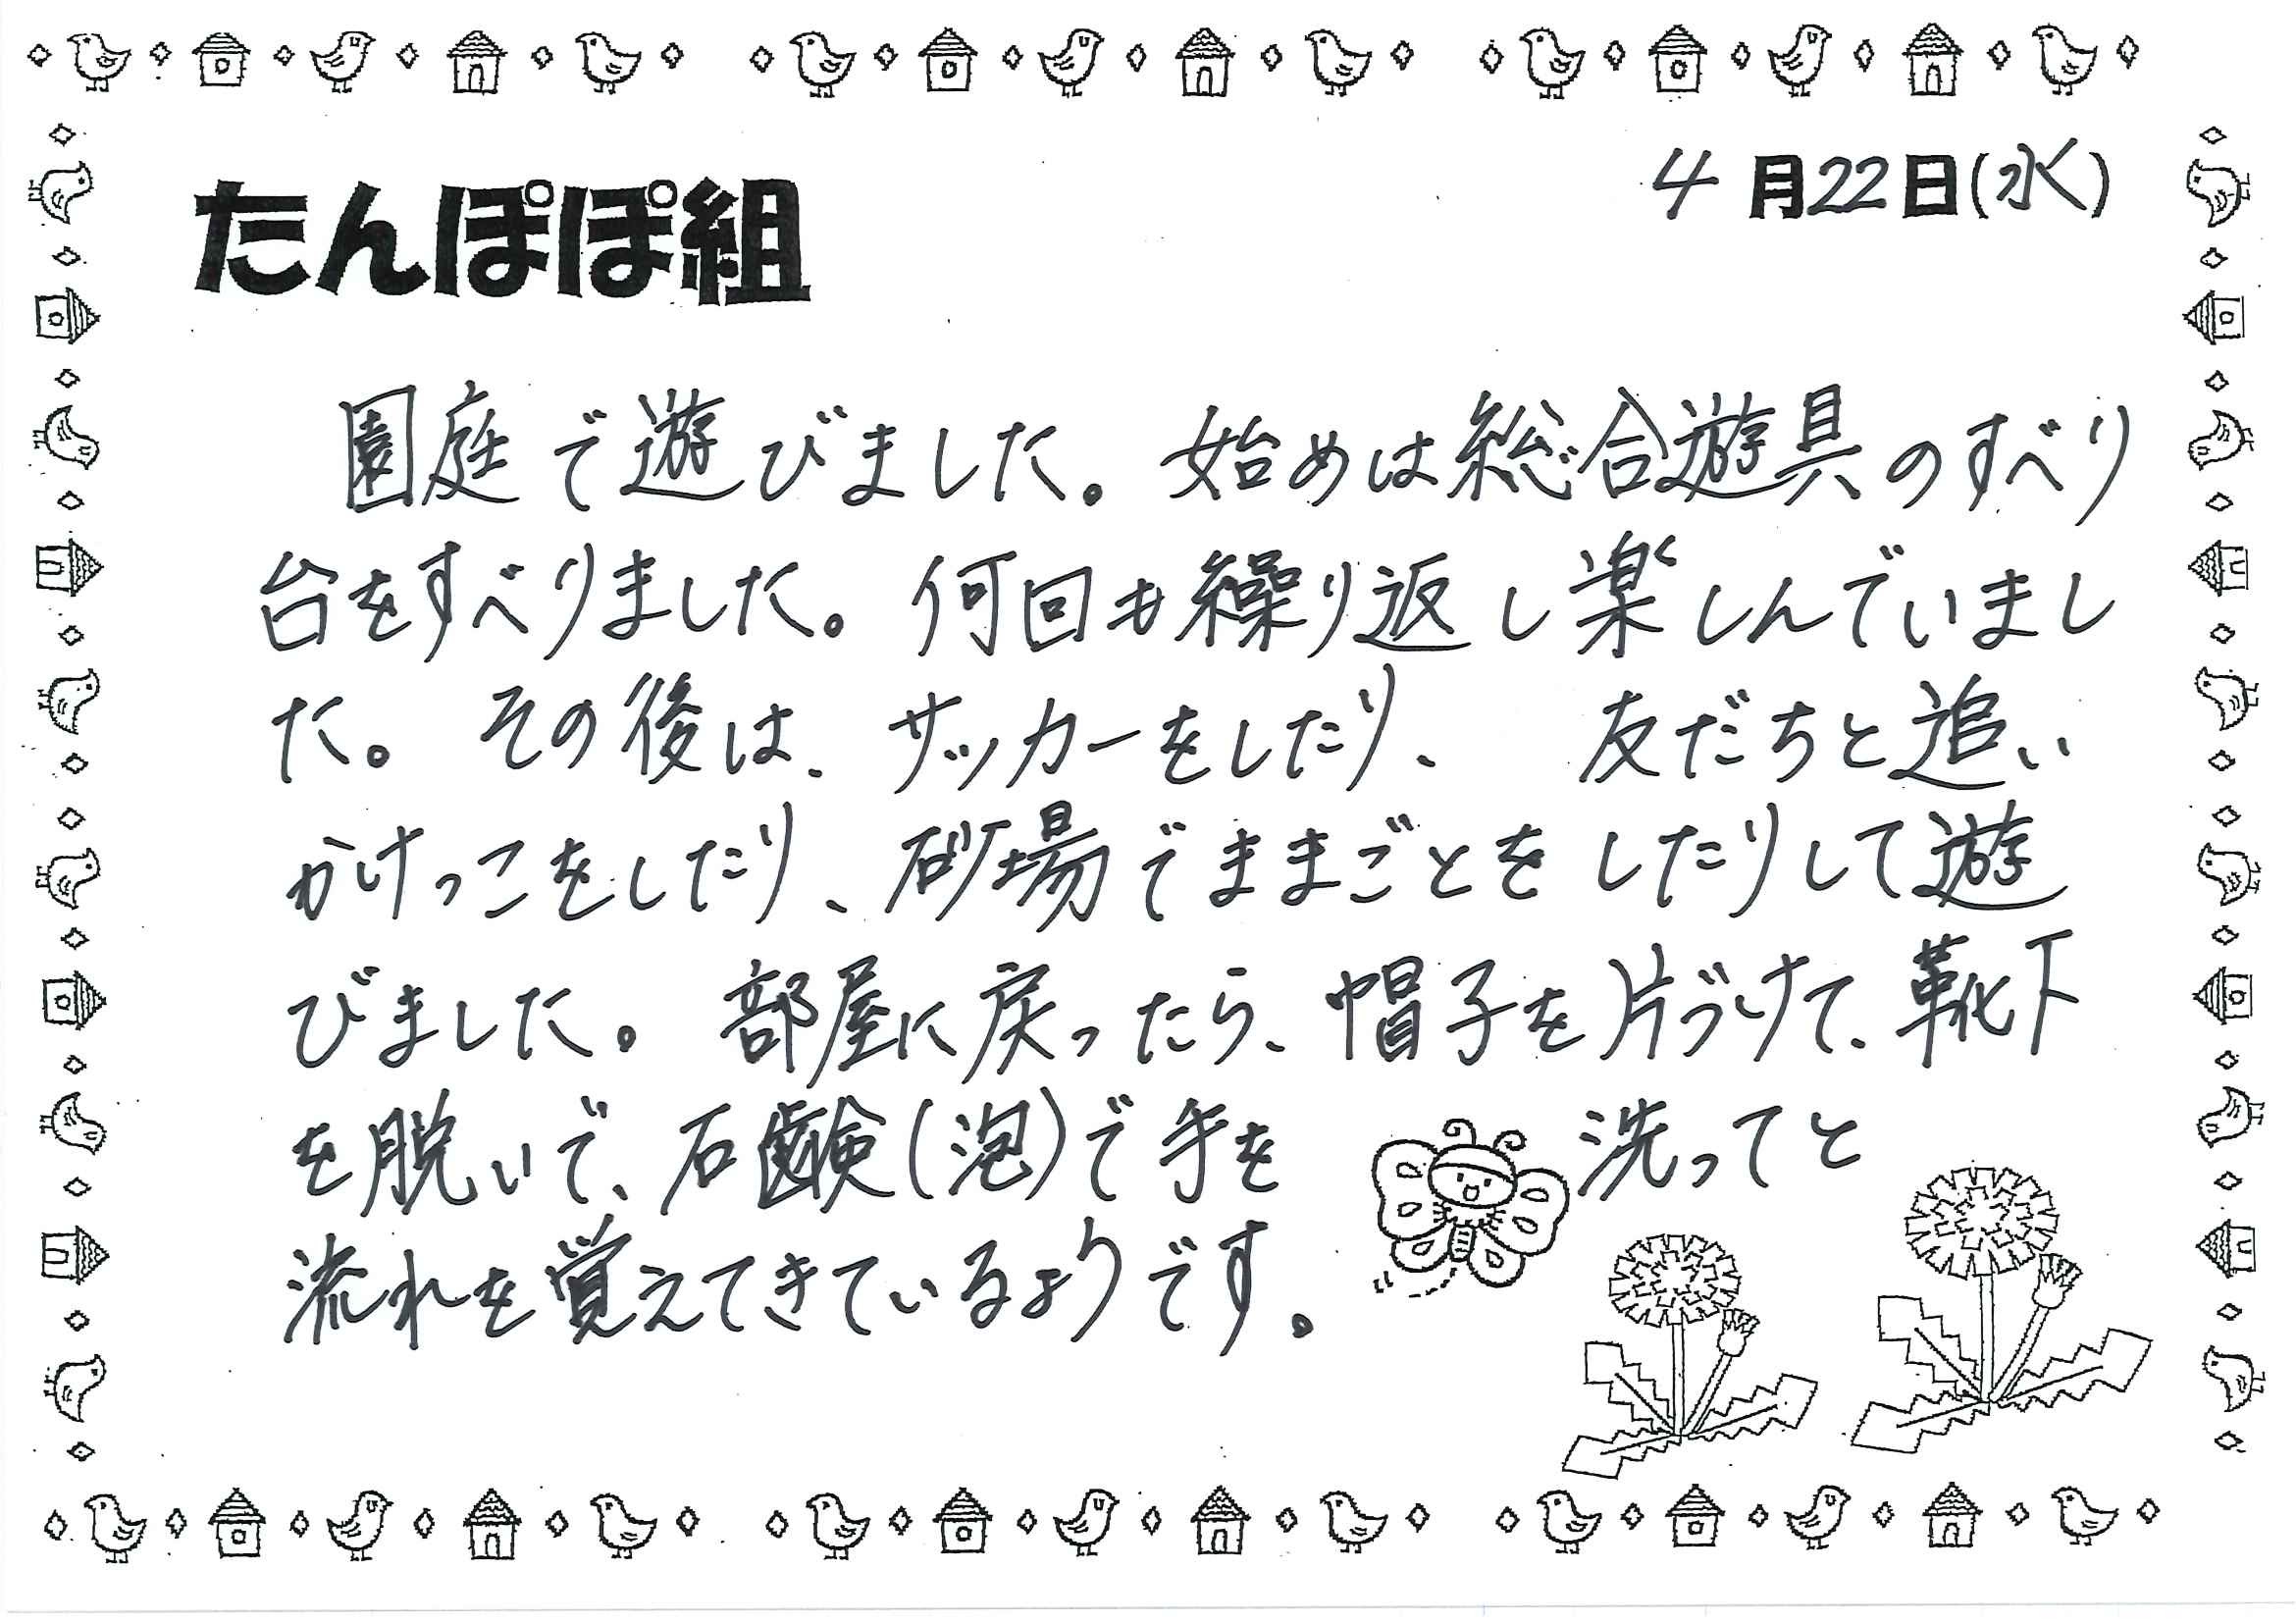 4月22日(水)
たんぽぽ組
園庭で遊びました。始めは総合遊具のすべり
台をすべりました。何回も繰り返し楽しんでいまし
た。その後は、サッカーをしたり、友だちと追い
かけっこをしたり、砂場でままごとをしたりして遊
びました。部屋に戻ったら、帽子を片づけて、靴下
を脱いで、石鹸(泡)で手を洗ってと
流れを覚えてきているようです。